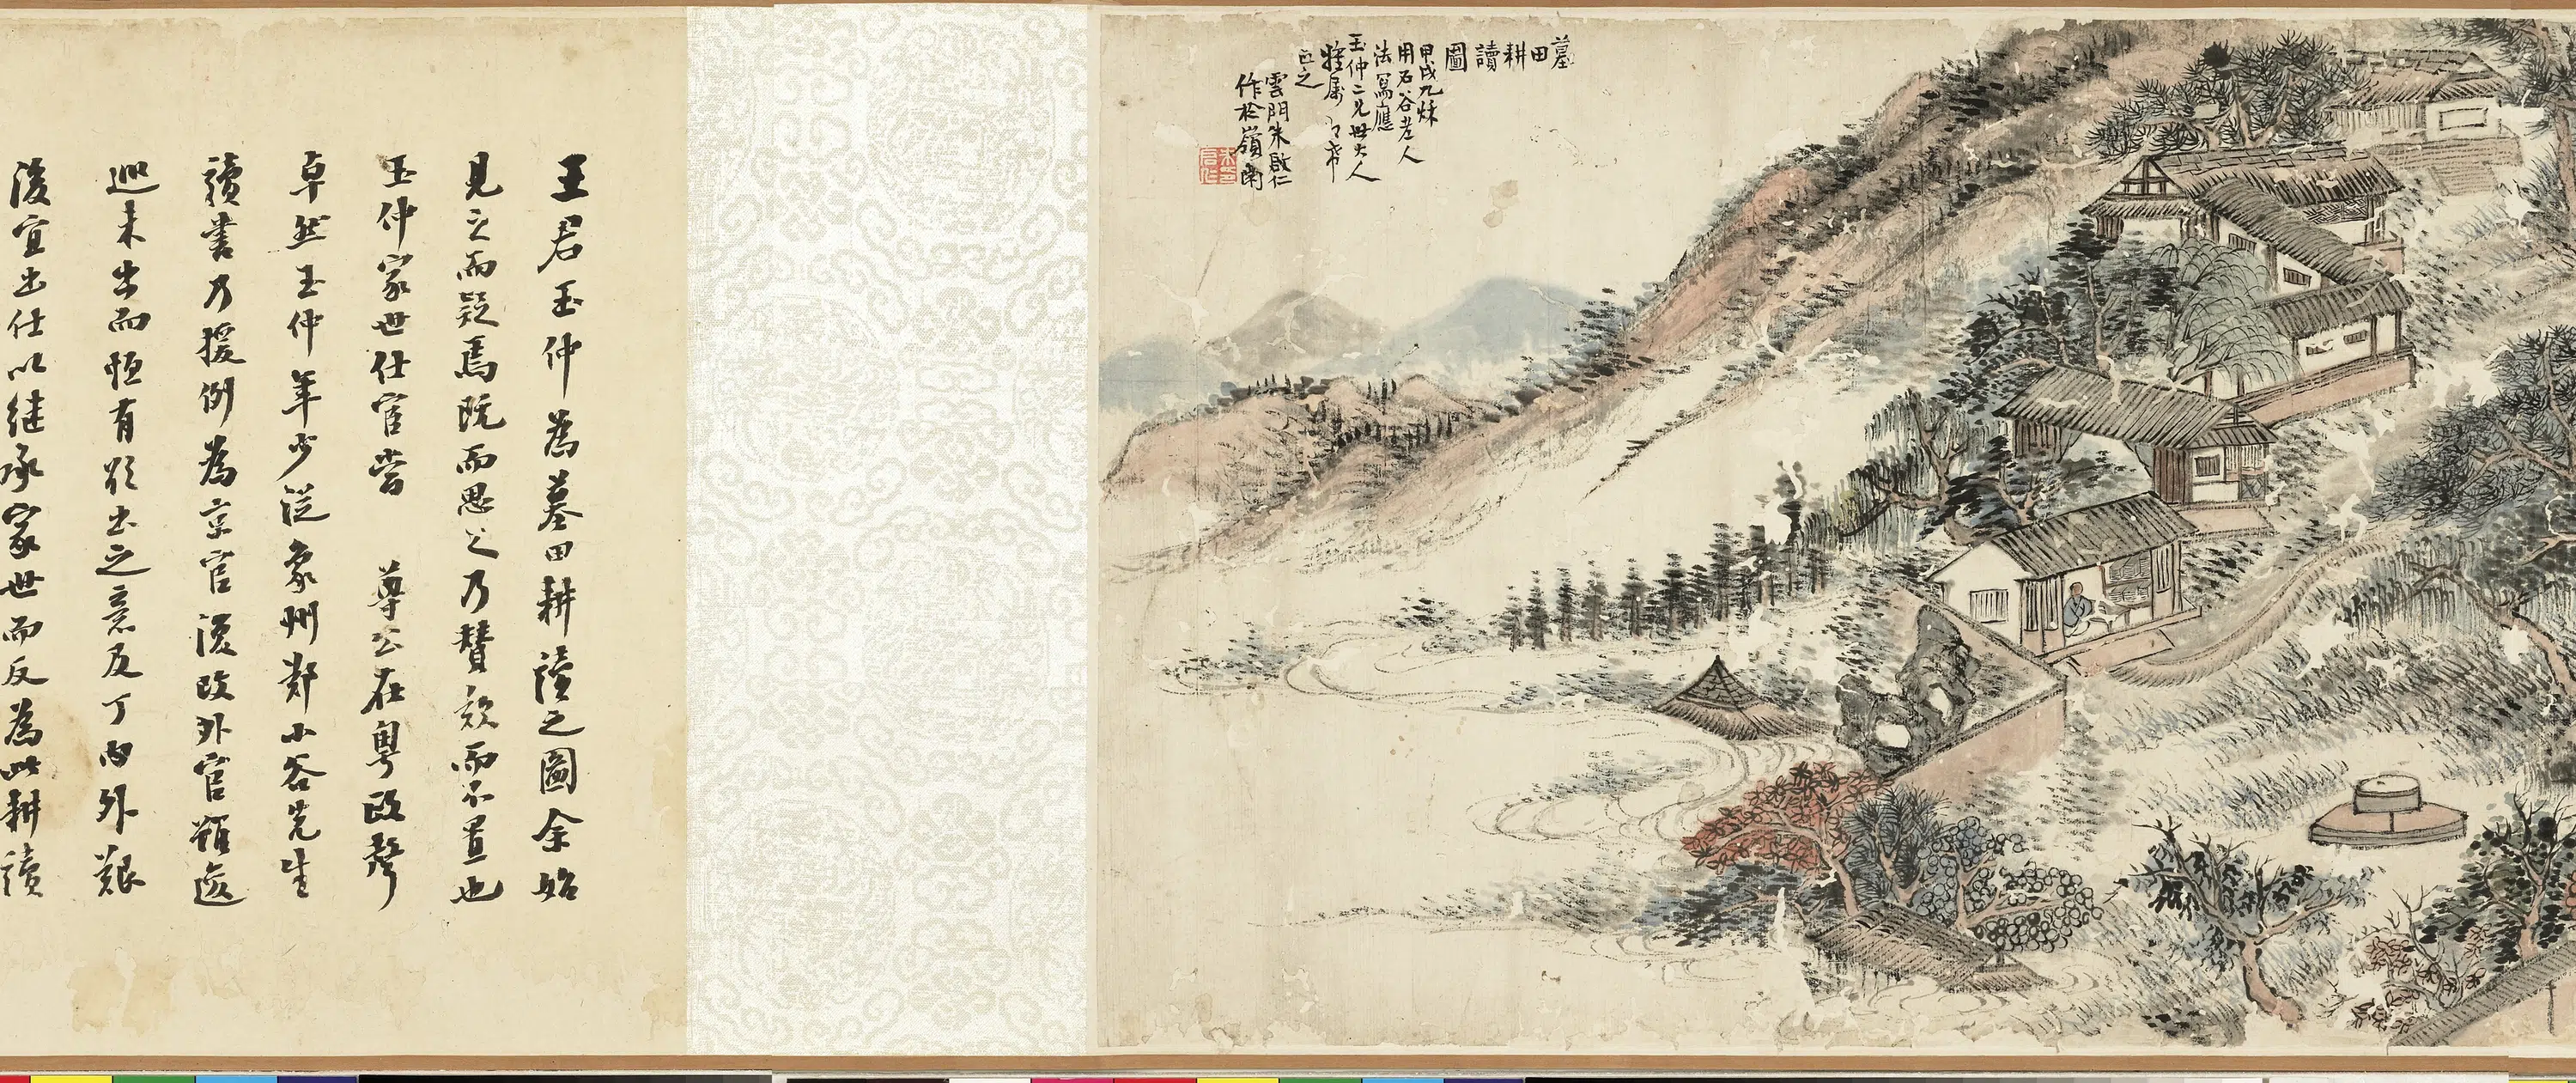 墓田
耕
讀
圖
甲戌九秋
用石谷老人
法寫應
玉仲二兄世大人
雅屬即希
正之
雲門朱啟仁
作於嶺南
王君玉仲為墓田耕讀之圖余始
見之而疑焉既而思之乃贊歎而不置也
玉仲家世仕宦嘗 尊公在粵政聲
卓然玉仲年少從象州鄭小谷先生
讀書乃援例為京官復改外官額
巡未出而恒有欲出之意及丁內外艱
後宜出仕以繼承家世而反為此耕讀